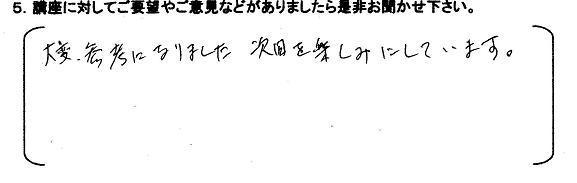 5. 講座に対してご要望やご意見などがありましたら是非お聞かせ下さい。
大変、参考になりました 次回を楽しみにしています。